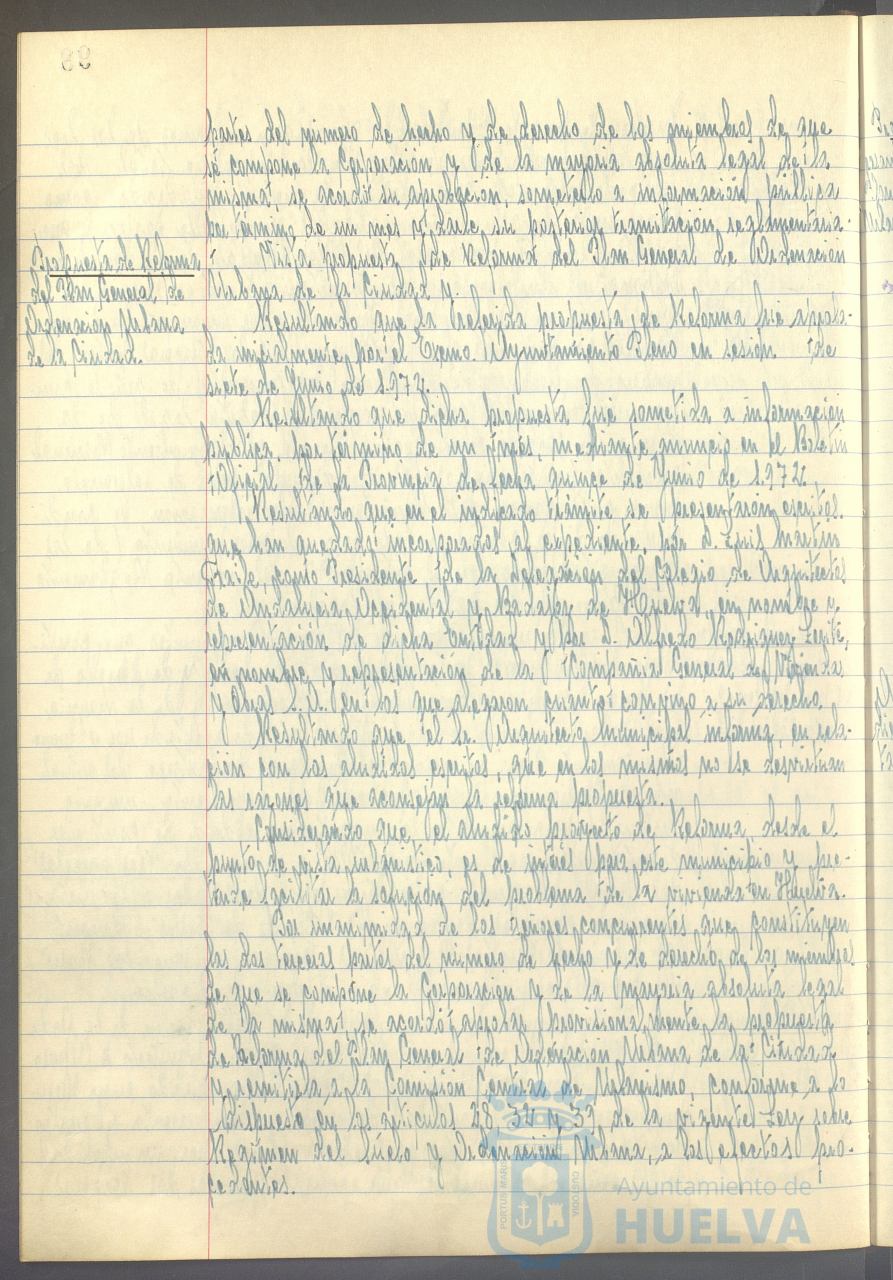 98
partes del número de hecho y de derecho de los miembros de que
se compone la Corporación y de la mayoria absoluta legal de la
misma, se acordó su aprobación, someterlo a información pública
por término de un mes y darle su posterior tramitación reglamentaria.
Propuesta de Reforma
del Plan General de
Ordenacion Urbana
de la Ciudad.
Vista propuesta de Reforma del Plan General de Ordenacion
Urbana de la Ciudad y.
Resultando que la referida propuesta de Reforma fue aproba-
da inicialmente por el Excmo. Ayuntamiento Pleno en sesión de
siete de Junio de 1.972.
Resultando que dicha propuesta fué sometida a informacion
pública, por término de un mes, mediante anuncio en el Boletin
Oficial de la Provincia de fecha quince de Junio de 1.972.
Resultando que en el indicado trámite se presentaron escritos
que han quedado incorporados al expediente, por D. Luis Martín
Fraile, como Presidente de la Delegación del Colegio de Arquitectos
de Andalucia Occidental y Badajoz de Huelva, en nombre y
representación de dicha Entidad y por D. Alfredo Rodriguez
en nombre y representación de la Compañia General de Vivienda
y Obras S.A. en los que alegaron cuanto convino a su derecho.
Resultando que el Sr. Arquitecto Municipal informa, en rela-
ción con los aludidos escritos, que en los mismos no se desvirtuan
las razones que aconsejan la reforma propuesta.
Considerando que el aludido proyecto de Reforma, desde el
punto de vista urbanistico, es de interés para este municipio y pre-
tende facilitar la solución del problema de la vivienda en Huelva.
Por unanimidad de los señores concurrentes que constituyen
las dos terceras partes del número de hecho y de derecho de los miembros
de que se compone la Corporacion y de la mayoria absoluta legal
de la misma, se acordó aprobar provisionalmente la propuesta
de Reforma del Plan General de Ordenacion Urbana de la Ciudad
y remitirla a la Comisión Central de Urbanismo, conforme a lo
dispuesto en los articulos 28, 32 y 39 de la vigente Ley sobre
Régimen del Suelo y Ordenación Urbana, a los efectos pro-
cedentes.
PORTUS MARIS
CUSTODIA
Ayuntamiento de
HUELVA